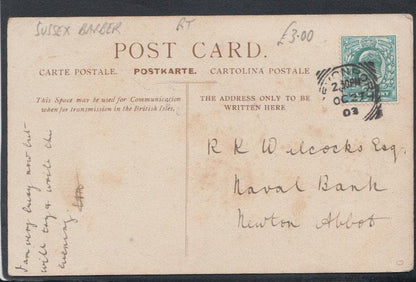 SUSSEX BARBER
RT
£3.00
POST CARD.
CARTE POSTALE. POSTKARTE. CARTOLINA POSTALE
This Space may be used for Communication
when for transmission in the British Isles.
THE ADDRESS ONLY TO BE
WRITTEN HERE
2.30PM
OC
03
R K Wilcocks Esq.
Naval Bank
Newton Abbot
I am very busy now but
will try & write this
evening.